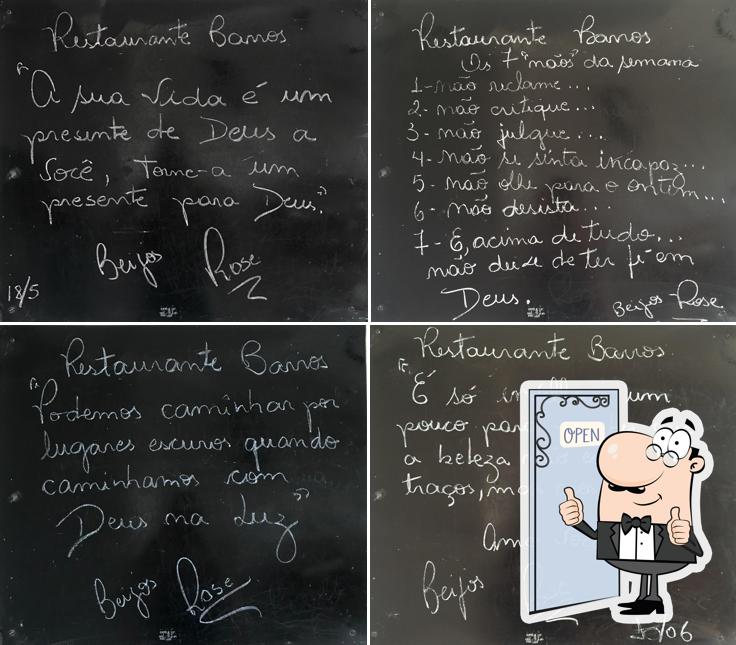 Restaurante Barros
"A sua vida é um
presente de Deus a
você, torne-a um
presente para Deus."
Beijos Rose
18/5
Restaurante Barros
Os 7 "nãos" da semana
1- não reclame...
2- não critique...
3- não julgue....
4- não se sinta incapaz...
5- não olhe para o ontem...
6- não desista...
7- E, acima de tudo...
não deixe de ter fé em
Deus.
Beijos Rose
Restaurante Barros
"Podemos caminhar por
lugares escuros quando
caminhamos com
Deus na Luz"
Beijos Rose
Restaurante Barros
"É só um
pouco
a beleza
traços,
Beijos
/06
OPEN